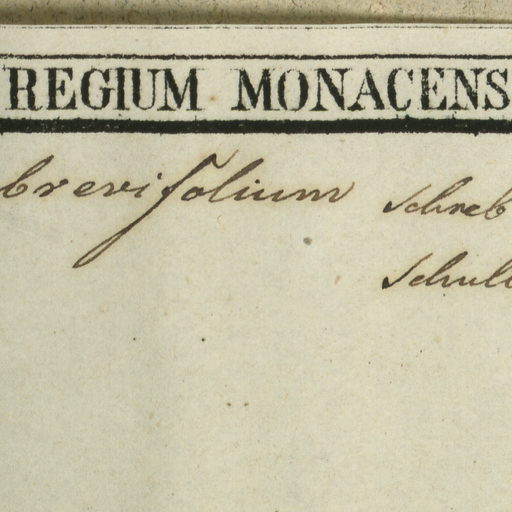 REGIUM MONACENS
brevifolium Schreb
Schult